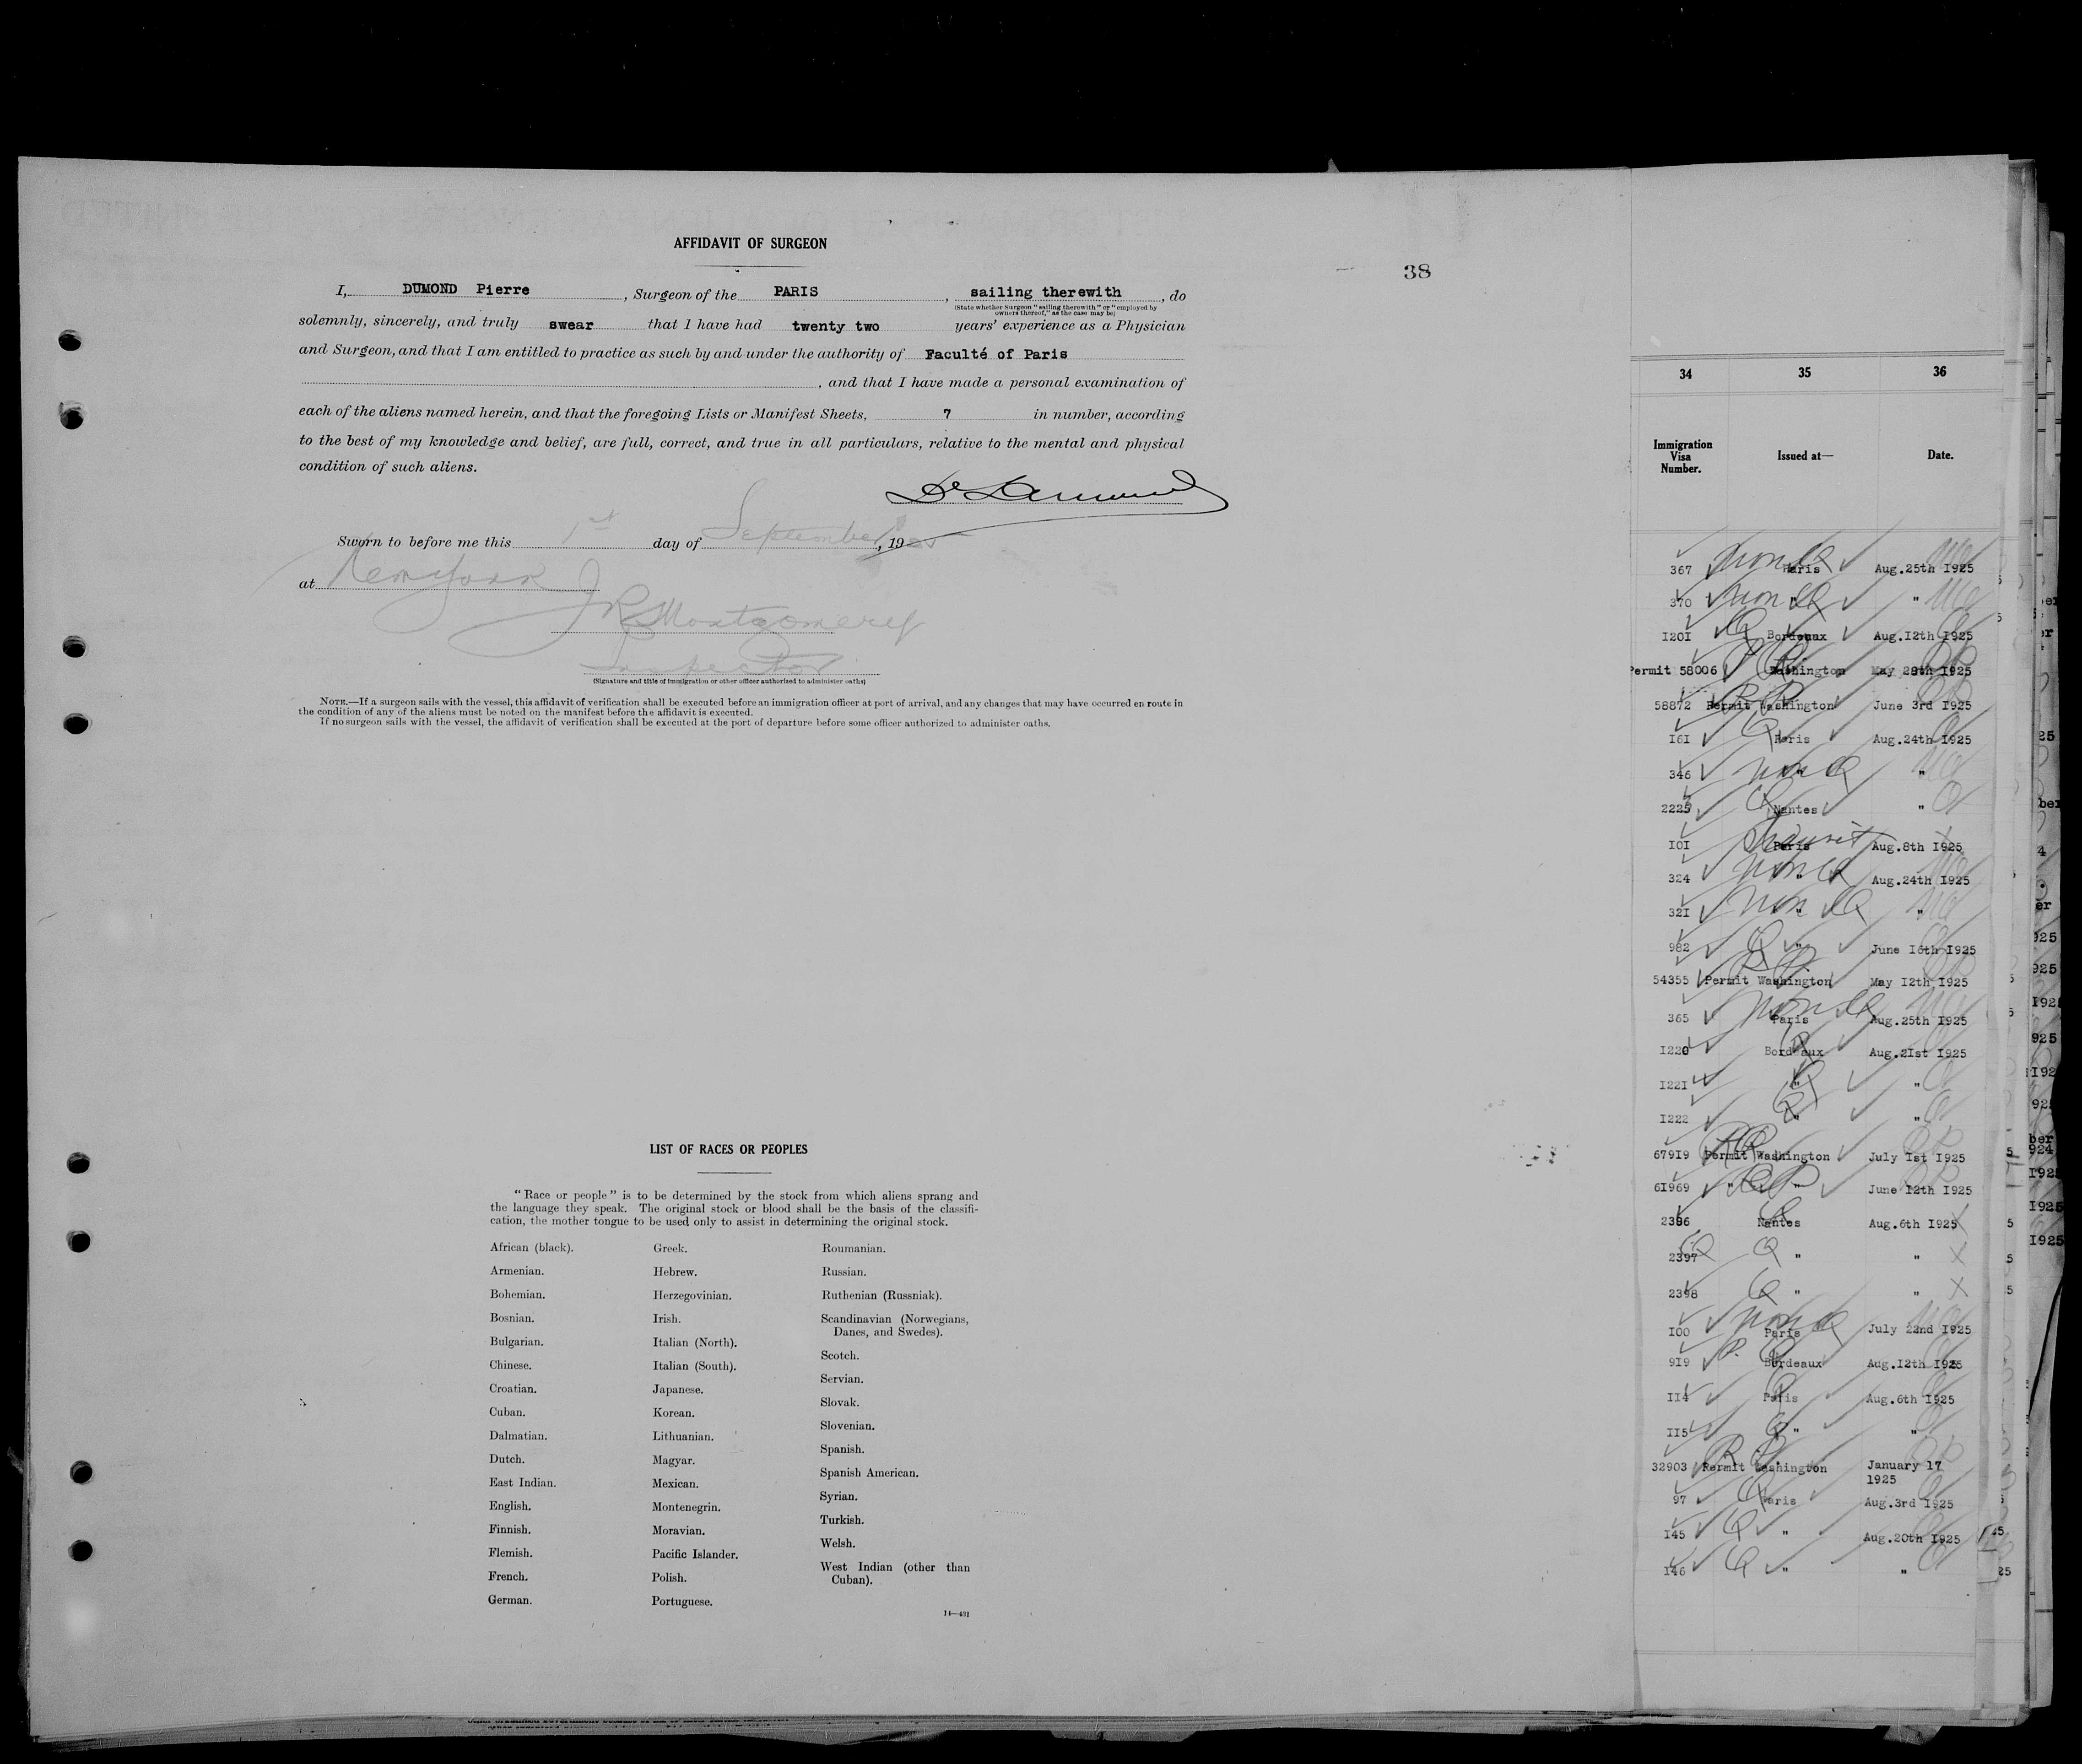 AFFIDAVIT OF SURGEON
38
I, DUMOND Pierre, Surgeon of the PARIS, sailing therewith, do
(State whether Surgeon "sailing therewith" or "employed by
owners thereof," as the case may be)
solemnly, sincerely, and truly swear that I have had twenty two years' experience as a Physician
and Surgeon, and that I am entitled to practice as such by and under the authority of Faculté of Paris
, and that I have made a personal examination of
each of the aliens named herein, and that the foregoing Lists or Manifest Sheets, 7 in number, according
to the best of my knowledge and belief, are full, correct, and true in all particulars, relative to the mental and physical
condition of such aliens.
Sworn to before me this 1st day of September, 1925
at New York
JR Montgomery
Inspector
(Signature and title of immigration or other officer authorized to administer oaths)
NOTE.—If a surgeon sails with the vessel, this affidavit of verification shall be executed before an immigration officer at port of arrival, and any changes that may have occurred en route in
the condition of any of the aliens must be noted on the manifest before the affidavit is executed.
If no surgeon sails with the vessel, the affidavit of verification shall be executed at the port of departure before some officer authorized to administer oaths.
LIST OF RACES OR PEOPLES
"Race or people" is to be determined by the stock from which aliens sprang and
the language they speak. The original stock or blood shall be the basis of the classifi-
cation, the mother tongue to be used only to assist in determining the original stock.
African (black).
Armenian.
Bohemian.
Bosnian.
Bulgarian.
Chinese.
Croatian.
Cuban.
Dalmatian.
Dutch.
East Indian.
English.
Finnish.
Flemish.
French.
German.
Greek.
Hebrew.
Herzegovinian.
Irish.
Italian (North).
Italian (South).
Japanese.
Korean.
Lithuanian.
Magyar.
Mexican.
Montenegrin.
Moravian.
Pacific Islander.
Polish.
Portuguese.
Roumanian.
Russian.
Ruthenian (Russniak).
Scandinavian (Norwegians,
Danes, and Swedes).
Scotch.
Servian.
Slovak.
Slovenian.
Spanish.
Spanish American.
Syrian.
Turkish.
Welsh.
West Indian (other than
Cuban).
14—431
34 35 36
Immigration
Visa
Number.
Issued at—
Date.
367 Paris Aug.25th I925
370 " "
I20I Bordeaux Aug.I2th I925
Permit 58006 Washington May 29th I925
58872 Permit Washington June 3rd I925
I6I Paris Aug.24th I925
346 " "
2225 Nantes "
I0I Paris Aug.8th I925
Transit
324 " Aug.24th I925
32I " "
982 " June I6th I925
54355 Permit Washington May I2th I925
365 Paris Aug.25th I925
I220 Bordeaux Aug.2Ist I925
I22I " "
I222 " "
679I9 Permit Washington July Ist I925
6I969 " " June I2th I925
2396 Nantes Aug.6th I925
2397 " "
2398 " "
I00 Paris July 22nd I925
9I9 Bordeaux Aug.I2th I925
II4 Paris Aug.6th I925
II5 " "
32903 Permit Washington January 17
1925
97 Paris Aug.3rd I925
I45 " Aug.20th I925
I46 " "